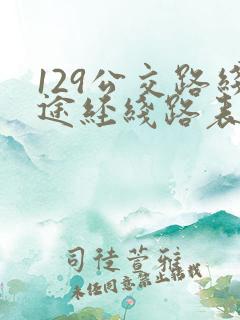 129公交路线
途经线路表
司徒萱雅
未经同意禁止转载